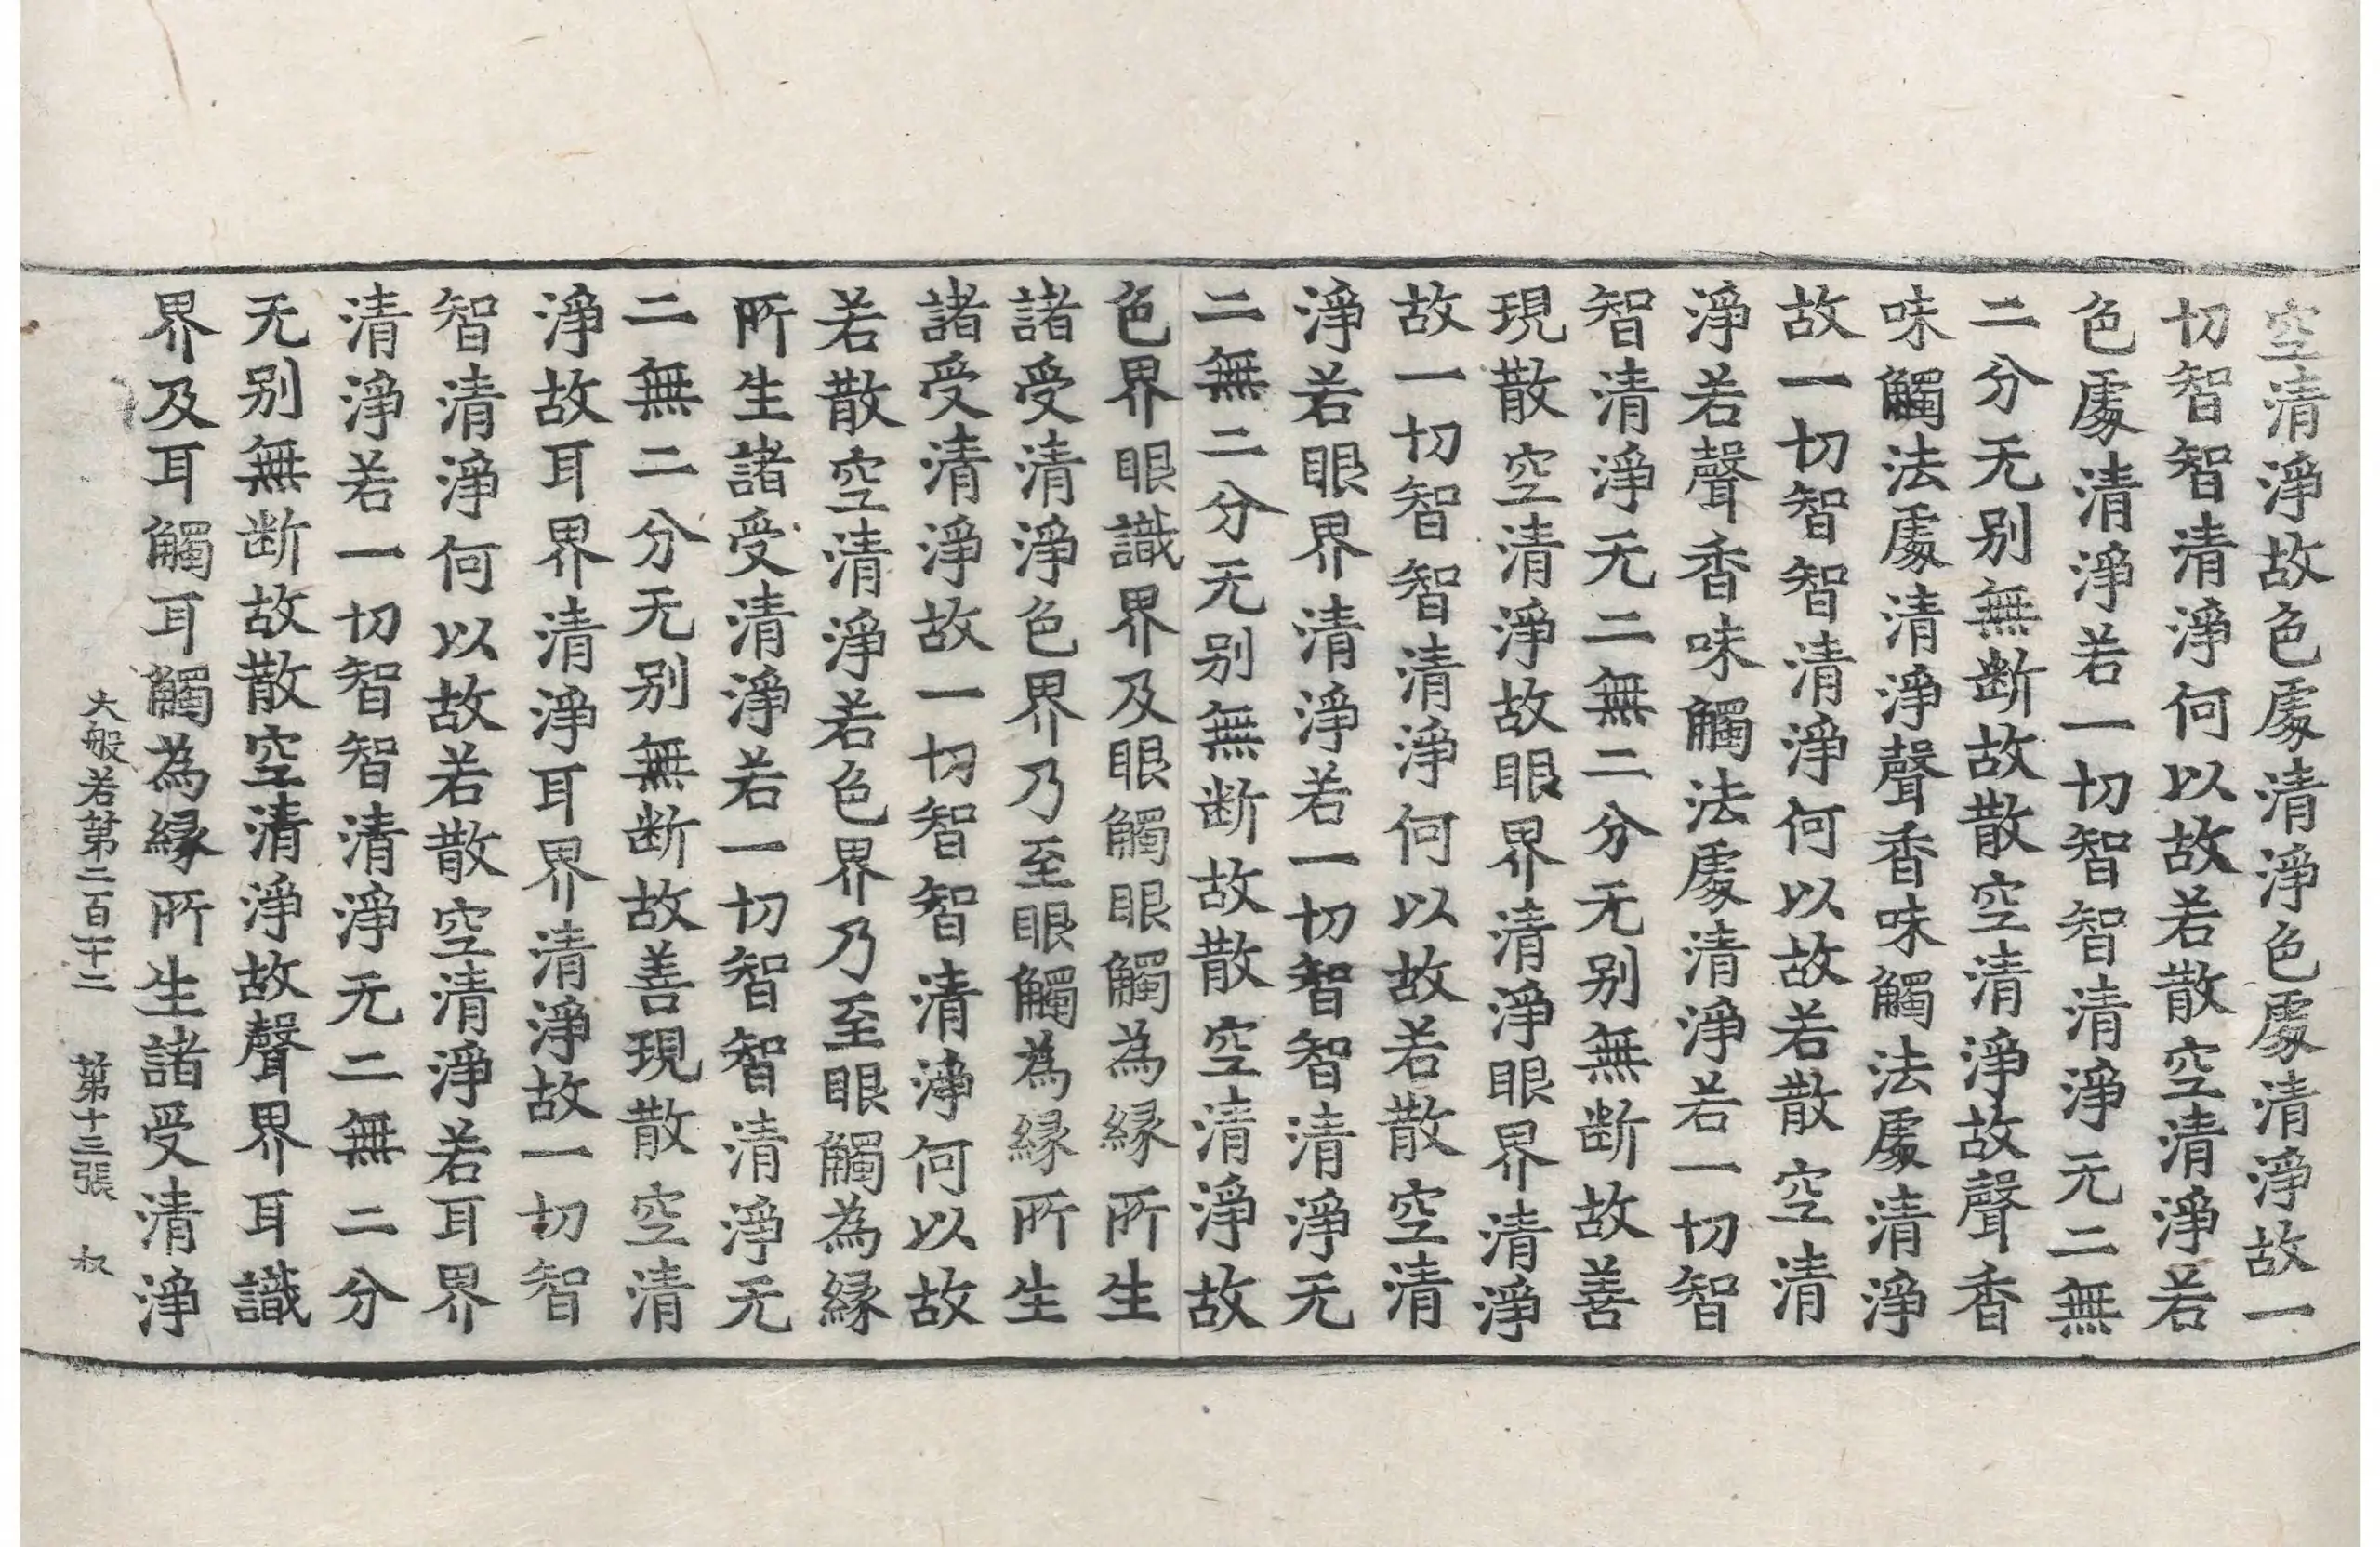 空清淨故色處清淨色處清淨故一
切智智清淨何以故若散空清淨若
色處清淨若一切智智清淨无二無
二分无别無断故散空清淨故聲香
味觸法處清淨聲香味觸法處清淨
故一切智智清淨何以故若散空清
淨若聲香味觸法處清淨若一切智
智清淨无二無二分无别無断故善
現散空清淨故眼界清淨眼界清淨
故一切智智清淨何以故若散空清
淨若眼界清淨若一切智智清淨无
二無二分无别無断故散空清淨故
色界眼識界及眼觸眼觸為縁所生
諸受清淨色界乃至眼觸為縁所生
諸受清淨故一切智智清淨何以故
若散空清淨若色界乃至眼觸為縁
所生諸受清淨若一切智智清淨无
二無二分无别無断故善現散空清
淨故耳界清淨耳界清淨故一切智
智清淨何以故若散空清淨若耳界
清淨若一切智智清淨无二無二分
无别無断故散空清淨故聲界耳識
界及耳觸耳觸為縁所生諸受清淨
大般若第二百十二 第十三張